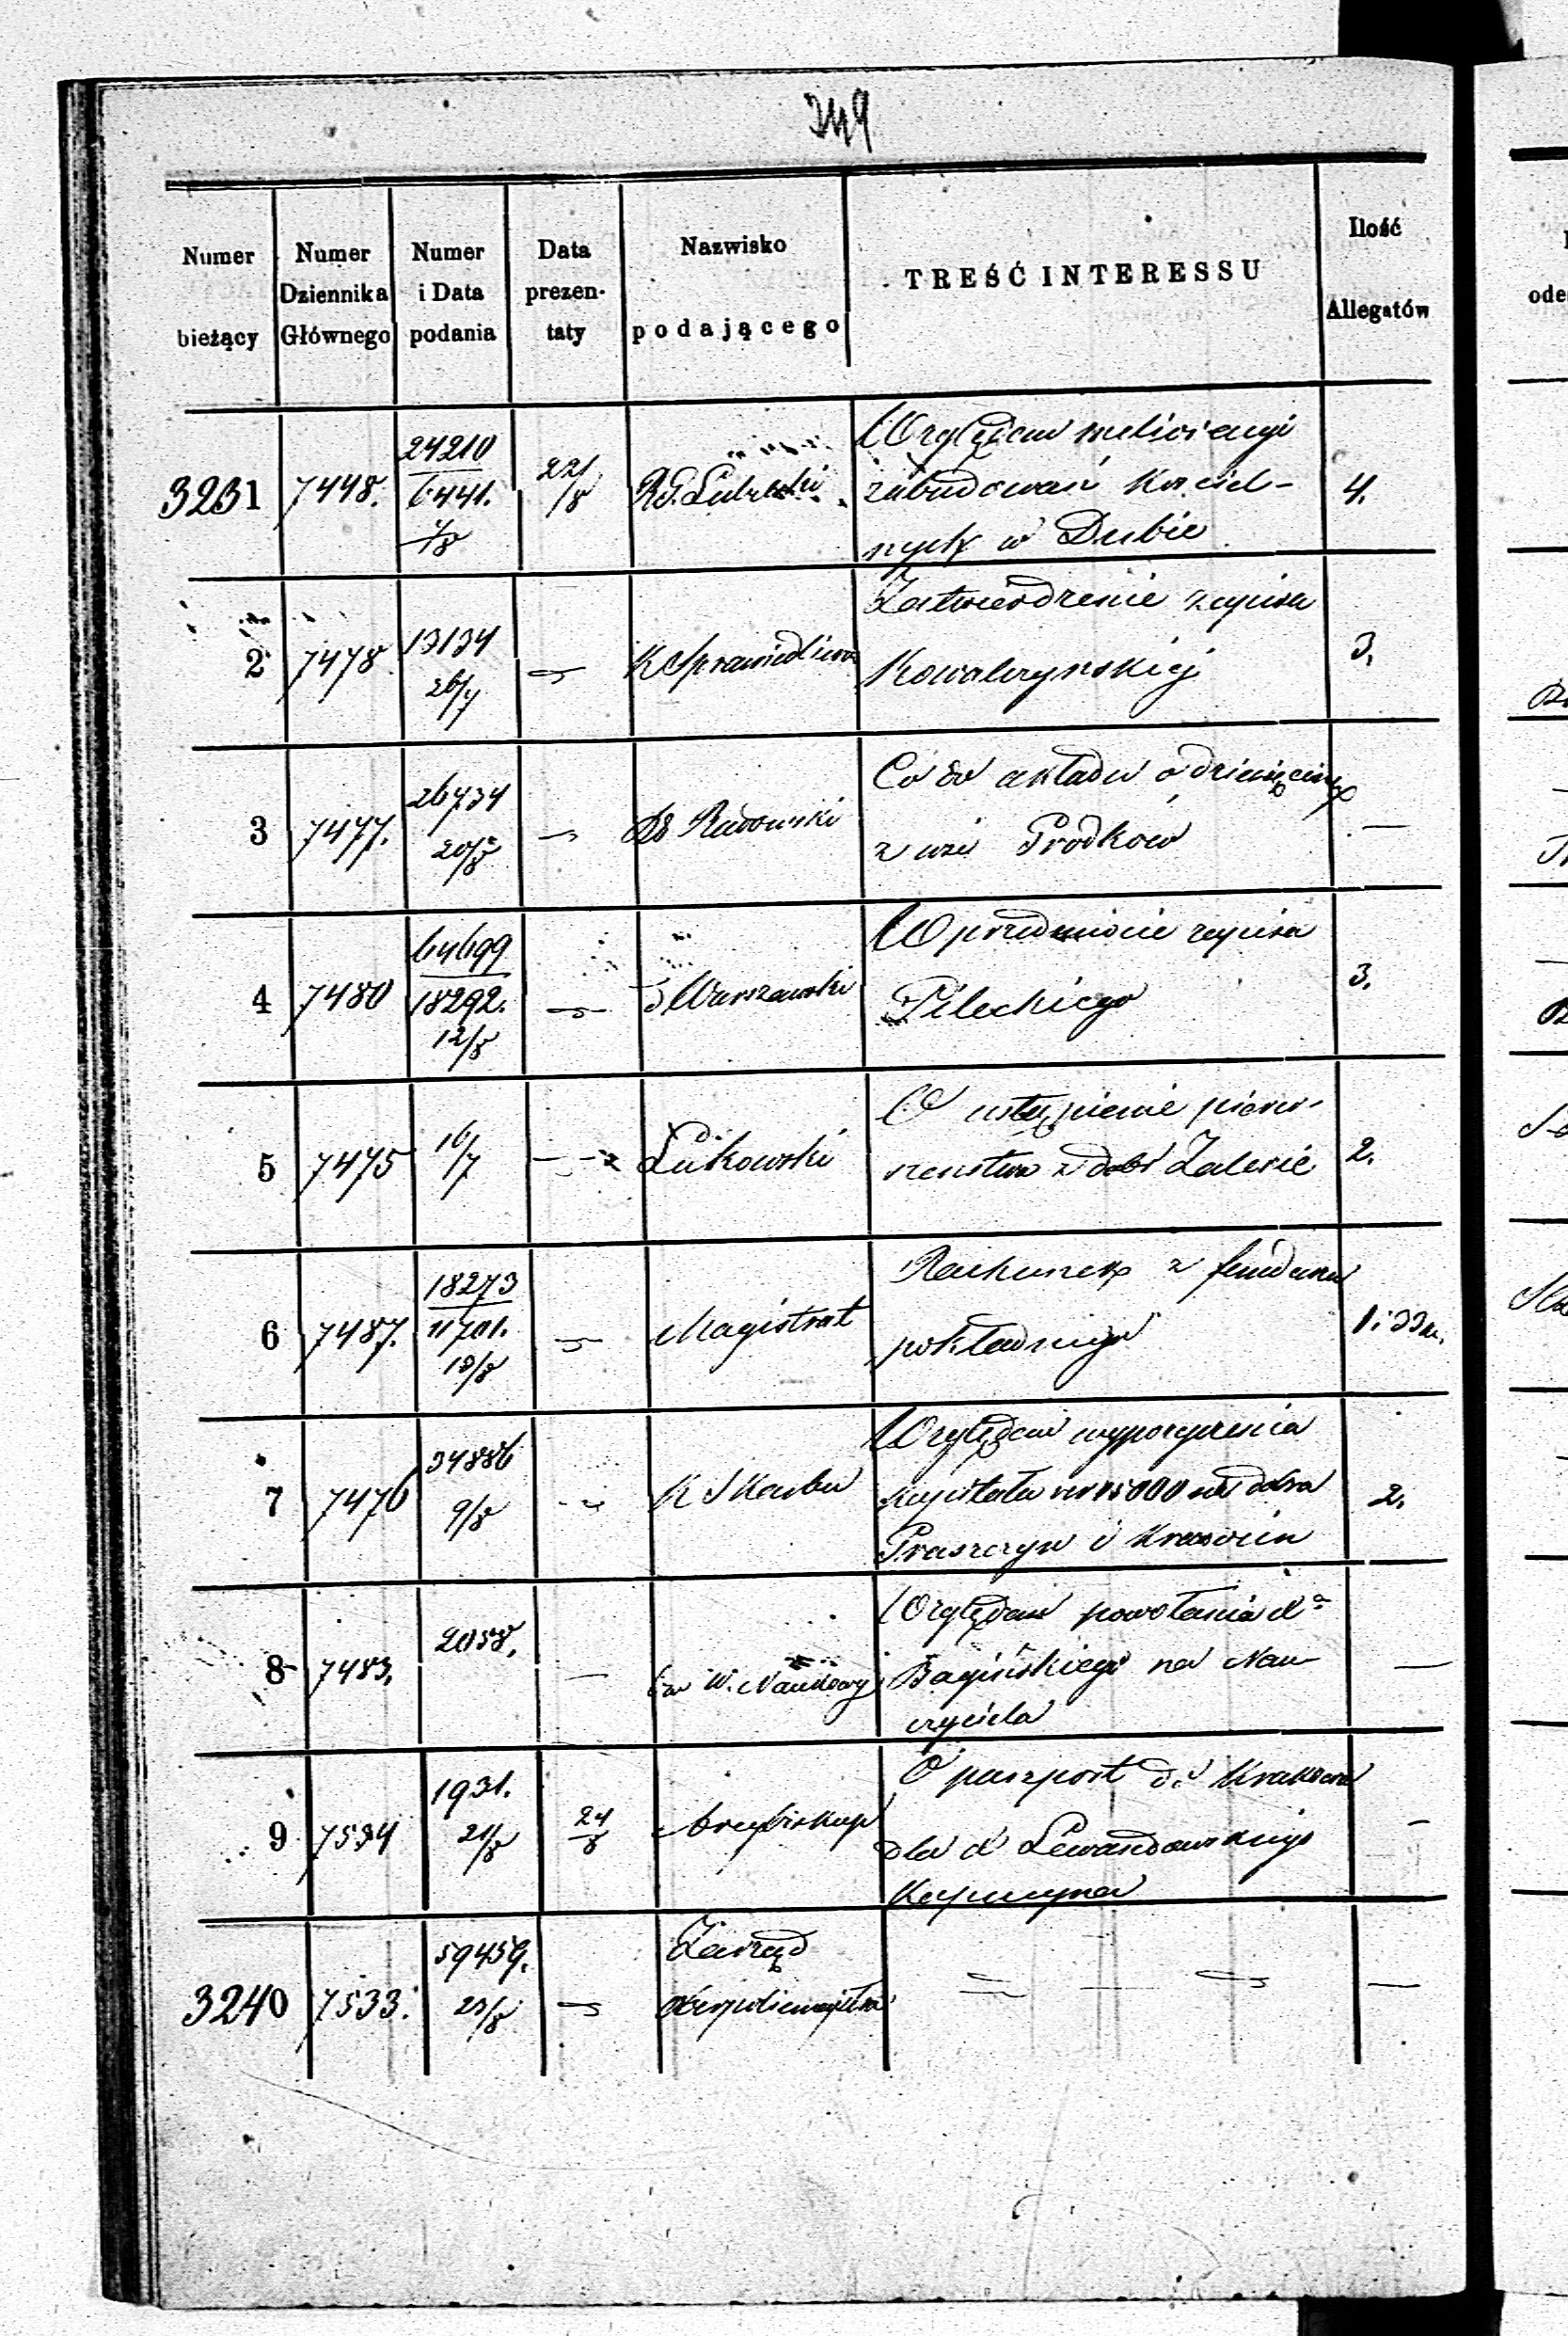 349
Numer bieżący
Numer Dziennika Głównego
Numer i Data podania
Data prezentaty
Nazwisko podającego
TREŚĆ INTERESSU
Ilość Allegatów
3231 7448. 24210 / 6441. 1/8 22/8 R. G. Lubelski Względem
zabudowań kościel-
nych w Dubie 4.
2 7478 13134 26/7 K Sprawiedliwo Zatwierdzenie zapisu
Kowalczynskiej 3.
3 7477. 26734 20/8 Radomski Co do układu o dziesięciny
z wsi Prodków —
4 7480 64699 / 18292. 12/8 Warszawski W przedmiocie zapisu
Pileckiego 3.
5 7475 16/7 X. Łukowski O ustąpienie pierw-
szenstwa z dóbr Zalesie 2.
6 7487. 18273 / 11701. 13/8 Magistrat Rachunek z funduszu
pokładnego
7 7476 34886 9/8 K Skarbu Względem wypożyczenia
kapitału rsr 15000 na dobra
Praszczyn i 2.
8 7483. 2058. — W. Naukowy Względem powołania Xa
Bagińskiego na Nau-
czyciela —
9 7534 1931. 21/8 24/8 Arcybiskup O paszport do Krakowa
dla X Lewandowskiego
Kapucyna —
3240 7533. 59459. 23/8 Zarząd
Oberpolicmajstra — — — —